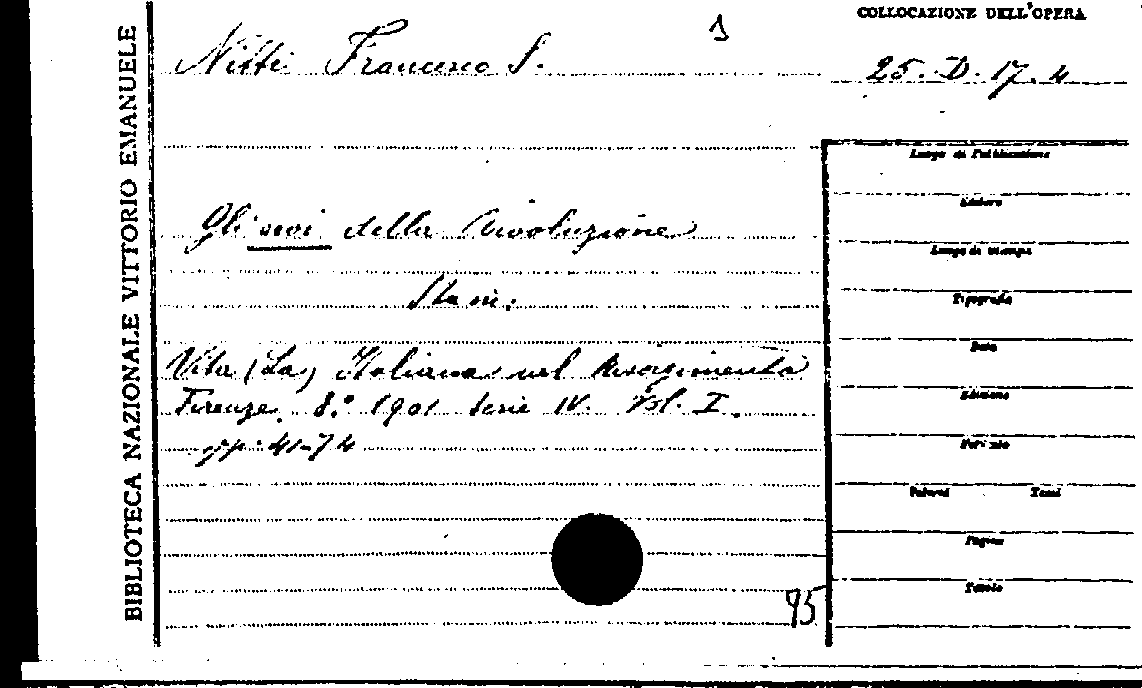 BIBLIOTECA NAZIONALE VITTORIO EMANUELE
COLLOCAZIONE DELL'OPERA
Nitti Francesco S.
25. D. 17. 4
Gli eroi della rivoluzione
Sta in:
Vita (La) Italiana nel Risorgimento
Firenze 8.° 1901 Serie IV. Vol. I.
pp. 41-74
95
Luogo di Pubblicazione
Editore
Luogo di stampa
Tipografia
Data
Edizione
Formato
Volumi Tomi
Pagine
Tavole